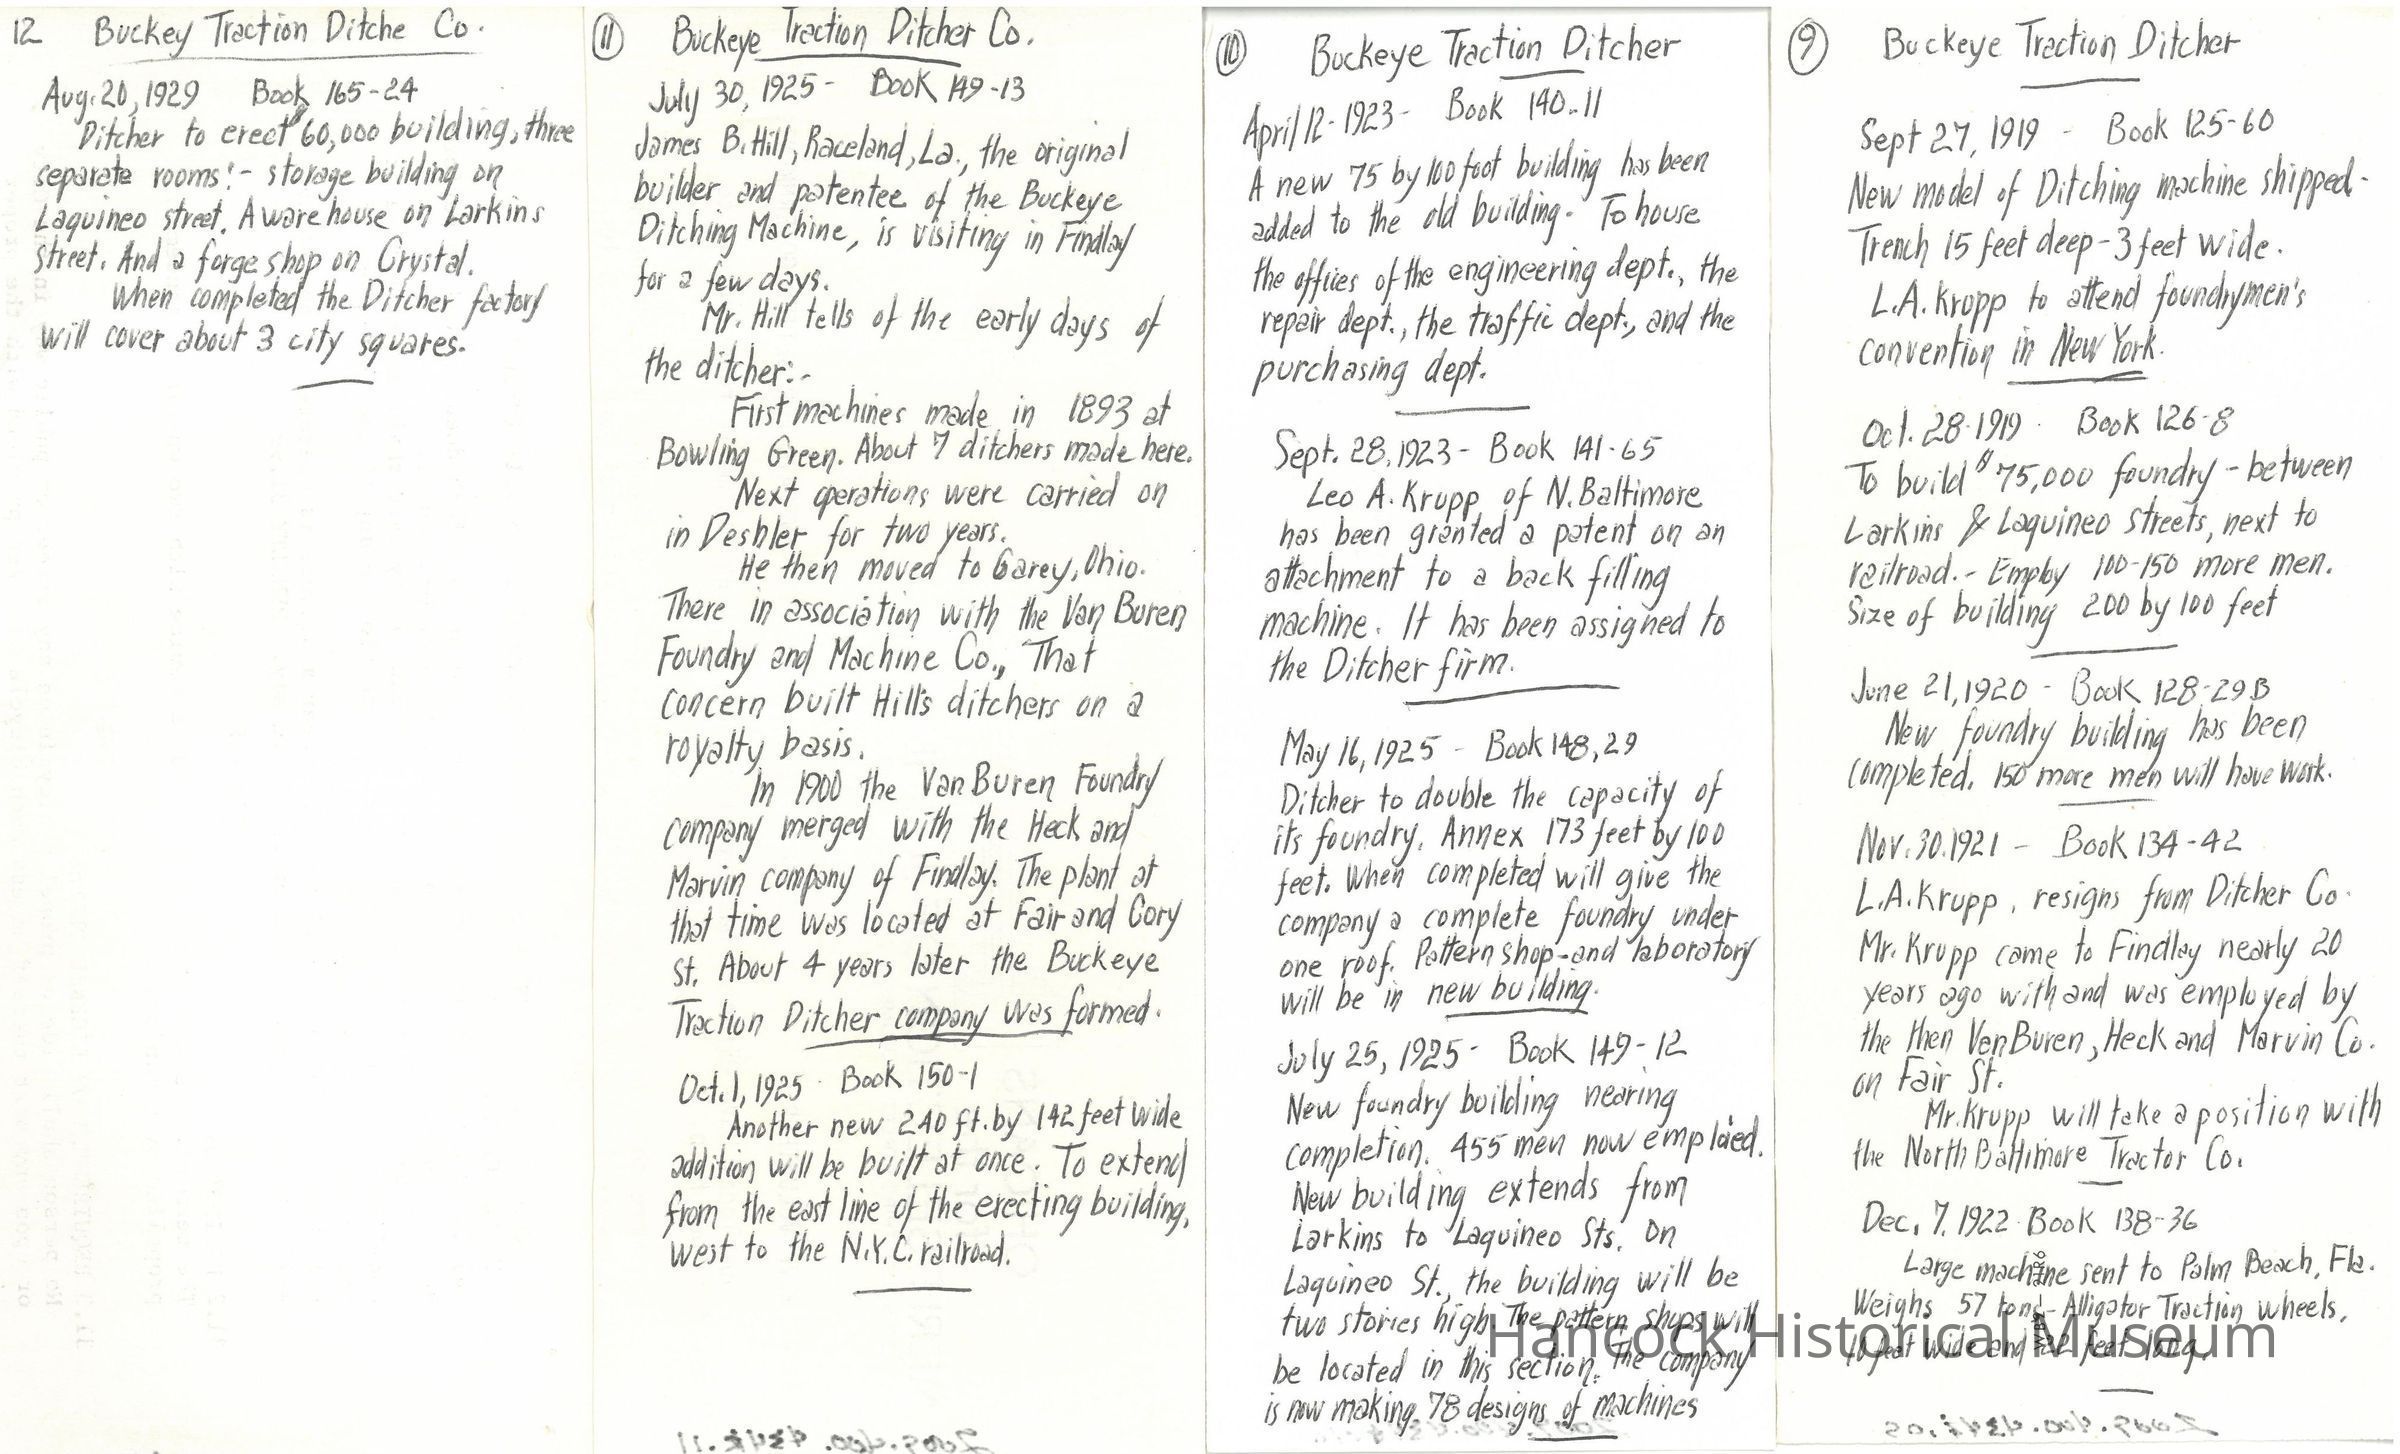 12 Buckey Traction Ditche Co.
Aug. 20, 1929 Book 165-24
Ditcher to erect $60,000 building, three
separate rooms:- storage building on
Laquineo street. A ware house on Larkins
street. And a forge shop on Crystal.
When completed the Ditcher factory
will cover about 3 city squares.
11 Buckeye Traction Ditcher Co.
July 30, 1925 - Book 149-13
James B. Hill, Raceland, La., the original
builder and patentee of the Buckeye
Ditching Machine, is visiting in Findlay
for a few days.
Mr. Hill tells of the early days of
the ditcher:-
First machines made in 1893 at
Bowling Green. About 7 ditchers made here.
Next operations were carried on
in Deshler for two years.
He then moved to Carey, Ohio.
There in association with the Van Buren
Foundry and Machine Co., That
concern built Hill's ditchers on a
royalty basis.
In 1900 the Van Buren Foundry
company merged with the Heck and
Marvin company of Findlay. The plant at
that time was located at Fair and Cory
St. About 4 years later the Buckeye
Traction Ditcher company was formed.
Oct. 1, 1925 - Book 150-1
Another new 240 ft. by 142 feet wide
addition will be built at once. To extend
from the east line of the erecting building,
west to the N.Y.C. railroad.
10 Buckeye Traction Ditcher
April 12-1923- Book 140-11
A new 75 by 100 foot building has been
added to the old building. To house
the offices of the engineering dept., the
repair dept., the traffic dept., and the
purchasing dept.
Sept. 28, 1923 - Book 141-65
Leo A. Krupp of N. Baltimore
has been granted a patent on an
attachment to a back filling
machine. It has been assigned to
the Ditcher firm.
May 16, 1925 - Book 148, 29
Ditcher to double the capacity of
its foundry. Annex 173 feet by 100
feet. When completed will give the
company a complete foundry under
one roof. Pattern shop-and laboratory
will be in new building.
July 25, 1925 - Book 149-12
New foundry building nearing
completion. 455 men now emploied.
New building extends from
Larkins to Laquineo Sts. On
Laquineo St., the building will be
two stories high. The pattern shops will
be located in this section. The company
is now making 78 designs of machines
9 Buckeye Traction Ditcher
Sept 27, 1919 - Book 125-60
New model of Ditching machine shipped-
Trench 15 feet deep - 3 feet wide.
L.A. Krupp to attend foundrymen's
convention in New York.
Oct. 28-1919 - Book 126-8
To build $75,000 foundry - between
Larkins & Laquineo streets, next to
railroad. - Employ 100-150 more men.
Size of building 200 by 100 feet
June 21, 1920 - Book 128-29B
New foundry building has been
completed. 150 more men will have work.
Nov. 30. 1921 - Book 134-42
L.A. Krupp, resigns from Ditcher Co.
Mr. Krupp came to Findlay nearly 20
years ago with and was employed by
the then Van Buren, Heck and Marvin Co.
on Fair St.
Mr. Krupp will take a position with
the North Baltimore Tractor Co.
Dec. 7. 1922 - Book 138-36
Large machine sent to Palm Beach, Fla.
Weighs 57 tons - Alligator Traction wheels,
10 feet wide and 22 feet long.
Hancock Historical Museum